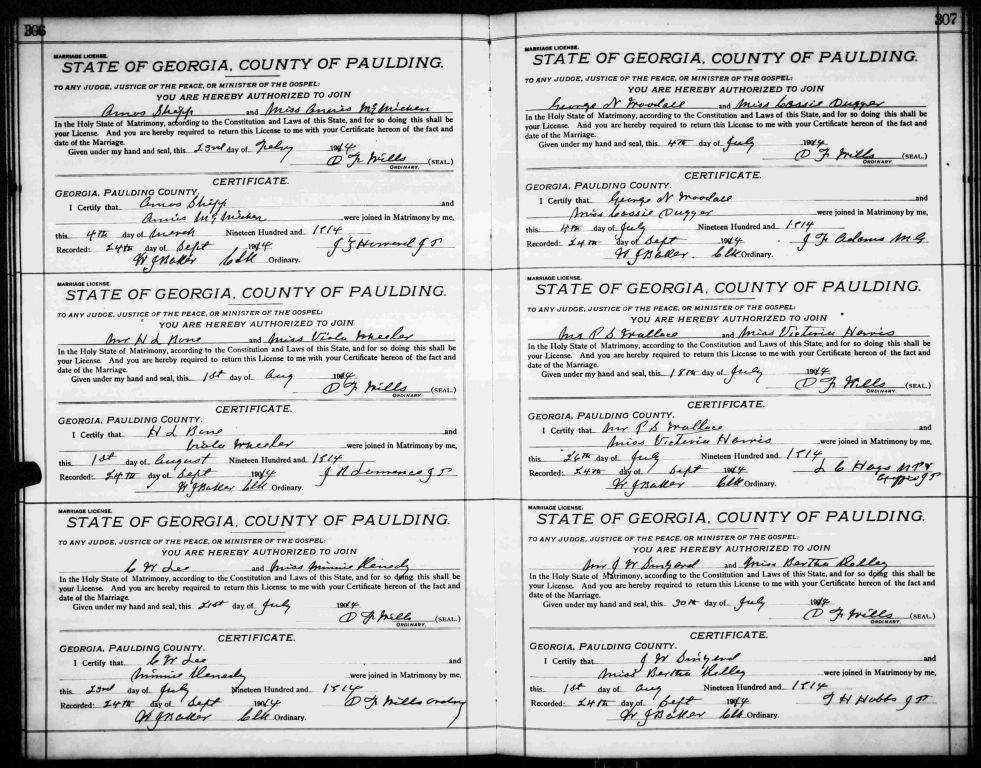 306
MARRIAGE LICENSE.
STATE OF GEORGIA, COUNTY OF PAULDING.
TO ANY JUDGE, JUSTICE OF THE PEACE, OR MINISTER OF THE GOSPEL:
YOU ARE HEREBY AUTHORIZED TO JOIN
Amos Shipp and Miss Annies McMichen
In the Holy State of Matrimony, according to the Constitution and Laws of this State, and for so doing this shall be
your License. And you are hereby required to return this License to me with your Certificate hereon of the fact and
date of the Marriage.
Given under my hand and seal, this 23rd day of Febry 1914
D F Wills (SEAL.)
ORDINARY.
CERTIFICATE.
GEORGIA, PAULDING COUNTY.
I Certify that Amos Shipp and
Annies McMichen were joined in Matrimony by me,
this 4th day of March Nineteen Hundred and 1914
Recorded: 24th day of Sept 1914 J J Howard J P
W J Baker Clk Ordinary.
MARRIAGE LICENSE.
STATE OF GEORGIA, COUNTY OF PAULDING.
TO ANY JUDGE, JUSTICE OF THE PEACE, OR MINISTER OF THE GOSPEL:
YOU ARE HEREBY AUTHORIZED TO JOIN
Mr H L Bone and Miss Viola Wheeler
In the Holy State of Matrimony, according to the Constitution and Laws of this State, and for so doing this shall be
your License. And you are hereby required to return this License to me with your Certificate hereon of the fact and
date of the Marriage.
Given under my hand and seal, this 1st day of Aug 1914
D F Wills (SEAL.)
ORDINARY.
CERTIFICATE.
GEORGIA, PAULDING COUNTY.
I Certify that H L Bone and
Viola Wheeler were joined in Matrimony by me,
this 1st day of August Nineteen Hundred and 1914
Recorded: 24th day of Sept 1914 J R Lawrence J P
W J Baker Clk Ordinary.
MARRIAGE LICENSE.
STATE OF GEORGIA, COUNTY OF PAULDING.
TO ANY JUDGE, JUSTICE OF THE PEACE, OR MINISTER OF THE GOSPEL:
YOU ARE HEREBY AUTHORIZED TO JOIN
C W Lee and Miss Minnie Kenedy
In the Holy State of Matrimony, according to the Constitution and Laws of this State, and for so doing this shall be
your License. And you are hereby required to return this License to me with your Certificate hereon of the fact and
date of the Marriage.
Given under my hand and seal, this 21st day of July 1914
D F Wills (SEAL.)
ORDINARY.
CERTIFICATE.
GEORGIA, PAULDING COUNTY.
I Certify that C W Lee and
Minnie Kenedy were joined in Matrimony by me,
this 23rd day of July Nineteen Hundred and 1914
Recorded: 24th day of Sept 1914 D F Wills ordny
W J Baker Clk Ordinary.
307
MARRIAGE LICENSE.
STATE OF GEORGIA, COUNTY OF PAULDING.
TO ANY JUDGE, JUSTICE OF THE PEACE, OR MINISTER OF THE GOSPEL:
YOU ARE HEREBY AUTHORIZED TO JOIN
George N Woodall and Miss Cassie Dugger
In the Holy State of Matrimony, according to the Constitution and Laws of this State, and for so doing this shall be
your License. And you are hereby required to return this License to me with your Certificate hereon of the fact and
date of the Marriage.
Given under my hand and seal, this 4th day of July 1914
D F Wills (SEAL.)
ORDINARY.
CERTIFICATE.
GEORGIA, PAULDING COUNTY.
I Certify that George N Woodall and
Miss Cassie Dugger were joined in Matrimony by me,
this 4th day of July Nineteen Hundred and 1914
Recorded: 24th day of Sept 1914 J F Adams M G
W J Baker Clk Ordinary.
MARRIAGE LICENSE.
STATE OF GEORGIA, COUNTY OF PAULDING.
TO ANY JUDGE, JUSTICE OF THE PEACE, OR MINISTER OF THE GOSPEL:
YOU ARE HEREBY AUTHORIZED TO JOIN
Mr P S Wallace and Miss Victoria Harris
In the Holy State of Matrimony, according to the Constitution and Laws of this State, and for so doing this shall be
your License. And you are hereby required to return this License to me with your Certificate hereon of the fact and
date of the Marriage.
Given under my hand and seal, this 18th day of July 1914
D F Wills (SEAL.)
ORDINARY.
CERTIFICATE.
GEORGIA, PAULDING COUNTY.
I Certify that Mr P S Wallace and
Miss Victoria Harris were joined in Matrimony by me,
this 26th day of July Nineteen Hundred and 1914
Recorded: 24th day of Sept 1914 L C Hays N P &
W J Baker Clk Ordinary. J P
MARRIAGE LICENSE.
STATE OF GEORGIA, COUNTY OF PAULDING.
TO ANY JUDGE, JUSTICE OF THE PEACE, OR MINISTER OF THE GOSPEL:
YOU ARE HEREBY AUTHORIZED TO JOIN
Mr J W Sinyard and Miss Bertha Kelley
In the Holy State of Matrimony, according to the Constitution and Laws of this State, and for so doing this shall be
your License. And you are hereby required to return this License to me with your Certificate hereon of the fact and
date of the Marriage.
Given under my hand and seal, this 30th day of July 1914
D F Wills (SEAL.)
ORDINARY.
CERTIFICATE.
GEORGIA, PAULDING COUNTY.
I Certify that J W Sinyard and
Miss Bertha Kelley were joined in Matrimony by me,
this 1st day of Aug Nineteen Hundred and 1914
Recorded: 24th day of Sept 1914 T H Hobbs J P
W J Baker Clk Ordinary.